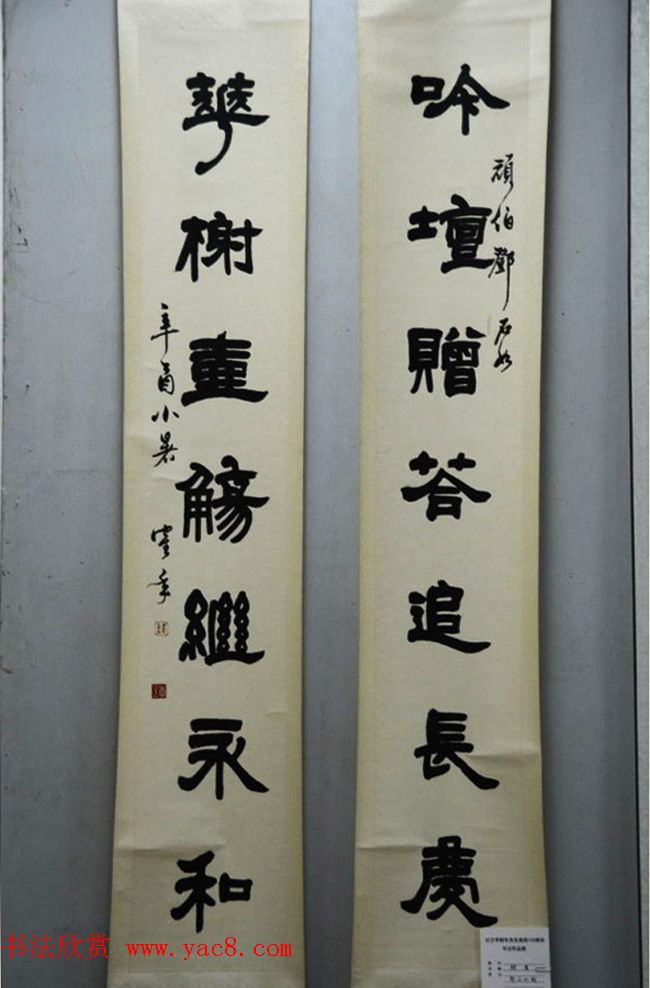 吟壇贈荅追長慶
頑伯鄧石如
華榭壷觴繼永和
辛酉小暑
书法欣赏 www.yac8.com